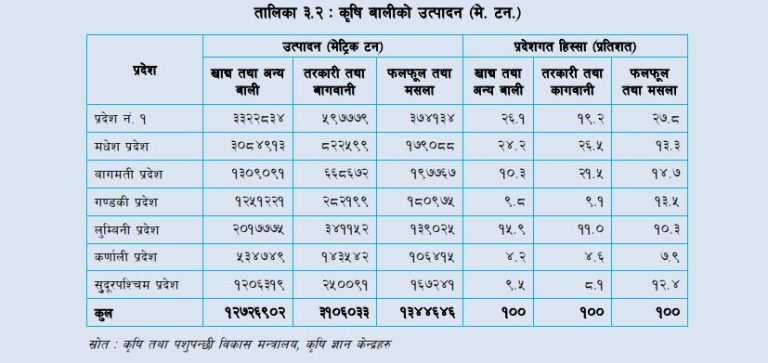 तालिका ३.२ : कृषि बालीको उत्पादन (मे. टन.)
प्रदेश उत्पादन (मेट्रिक टन) प्रदेशगत हिस्सा (प्रतिशत)
खाद्य तथा अन्य बाली तरकारी तथा बागवानी फलफूल तथा मसला खाद्य तथा अन्य बाली तरकारी तथा कागवानी फलफूल तथा मसला
प्रदेश नं. १ ३३२२८३४ ५९७७७९ ३७४१३४ २६.१ १९.२ २७.८
मधेश प्रदेश ३०८४९१३ ८२२५९९ १७९०८८ २४.२ २६.५ १३.३
बागमती प्रदेश १३०९०९१ ६६८६७२ १९७७६७ १०.३ २१.५ १४.७
गण्डकी प्रदेश १२५१२२१ २८२१९९ १८०९७५ ९.८ ९.१ १३.५
लुम्बिनी प्रदेश २०१७७७५ ३४११५२ १३९०२५ १५.९ ११.० १०.३
कर्णाली प्रदेश ५३४७४९ १४३५४२ १०६४१५ ४.२ ४.६ ७.९
सुदूरपश्चिम प्रदेश १२०६३१९ २५००९१ १६७२४१ ९.५ ८.१ १२.४
कुल १२७२६९०२ ३१०६०३३ १३४४६४६ १०० १०० १००
स्रोत : कृषि तथा पशुपन्छी विकास मन्त्रालय, कृषि ज्ञान केन्द्रहरु